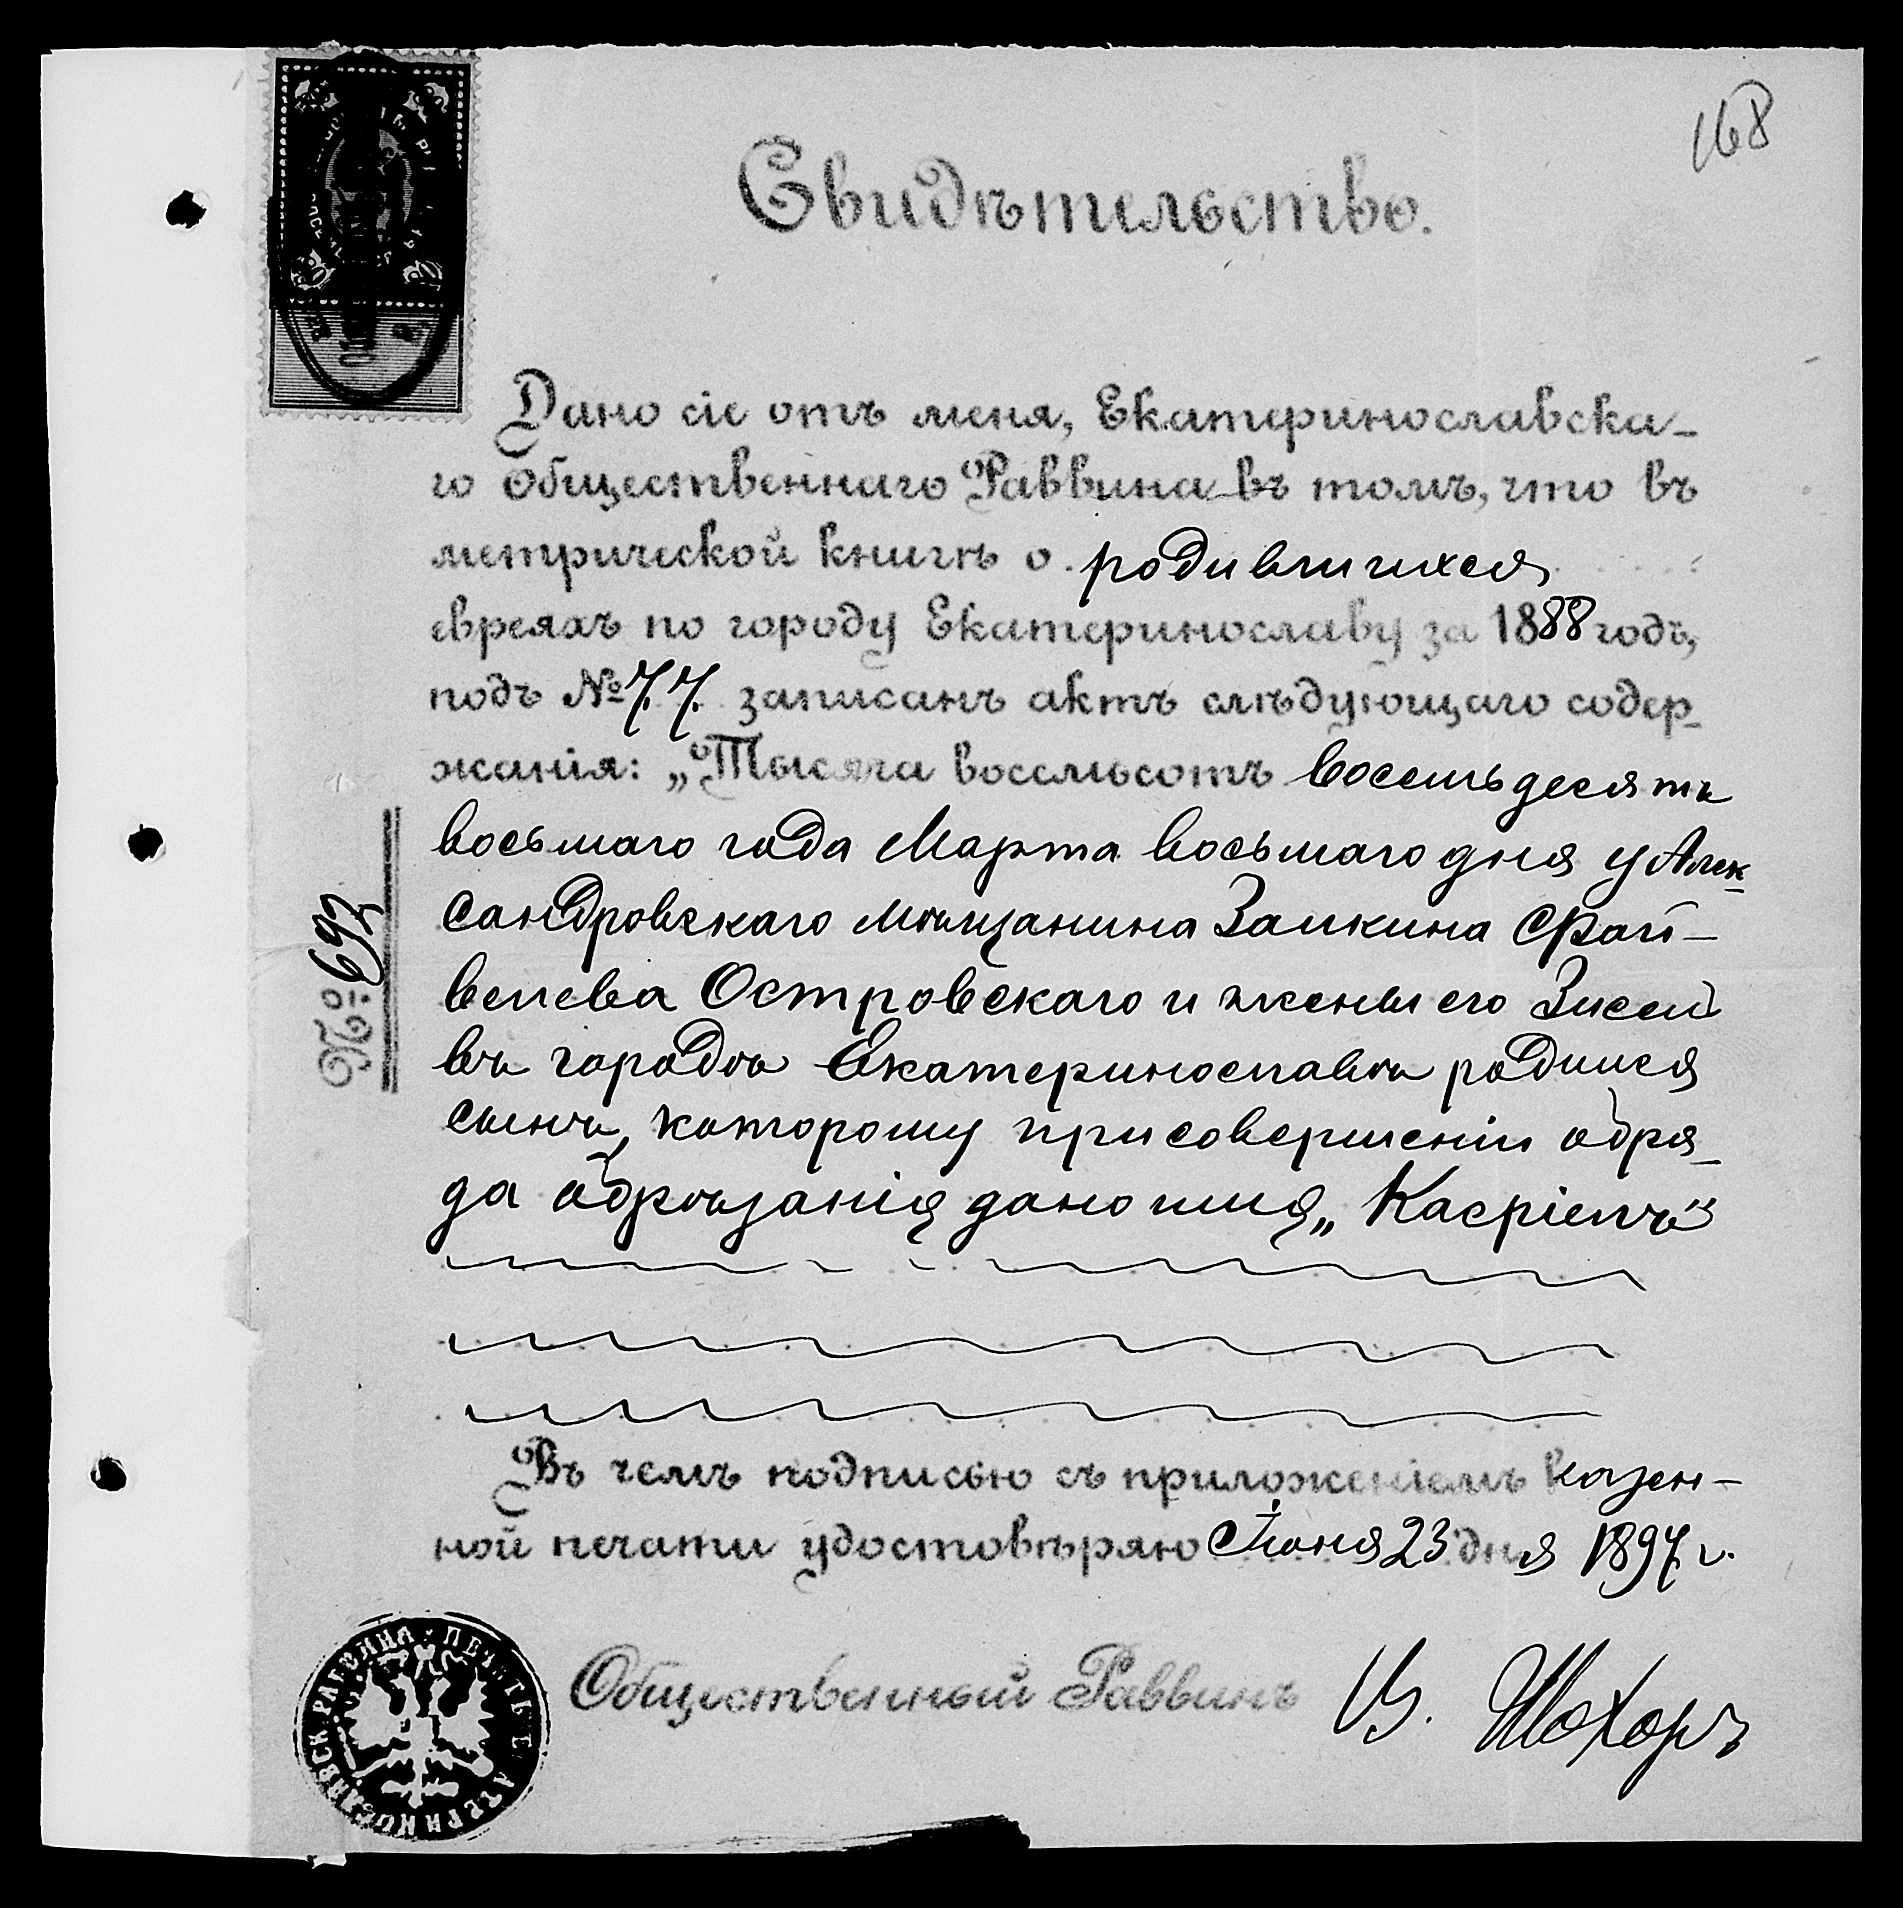 168
Свидѣтельство.
Дано сіе отъ меня, Екатеринославска-
го Общественнаго Раввина въ томъ, что въ
метрической книгѣ о родившихся
евреяхъ по городу Екатеринославу за 1888 годъ,
подъ № 77. записанъ актъ слѣдующаго содер-
жанія: „Тысяча восемьсотъ восемьдесятъ
восьмаго года Марта восьмаго дня у Алек-
сандровскаго мѣщанина Залкина Фай-
велева Островскаго и жены его Зисей
въ городѣ Екатеринославѣ родился
сынъ, которому при совершеніи обря-
да обрѣзанія дано имя „Касріелъ"
№ 697
Въ чемъ подписью съ приложеніемъ казен-
ной печати удостовѣряю Іюня 23 дня 1897 г.
Общественный Раввинъ В. Шохоръ